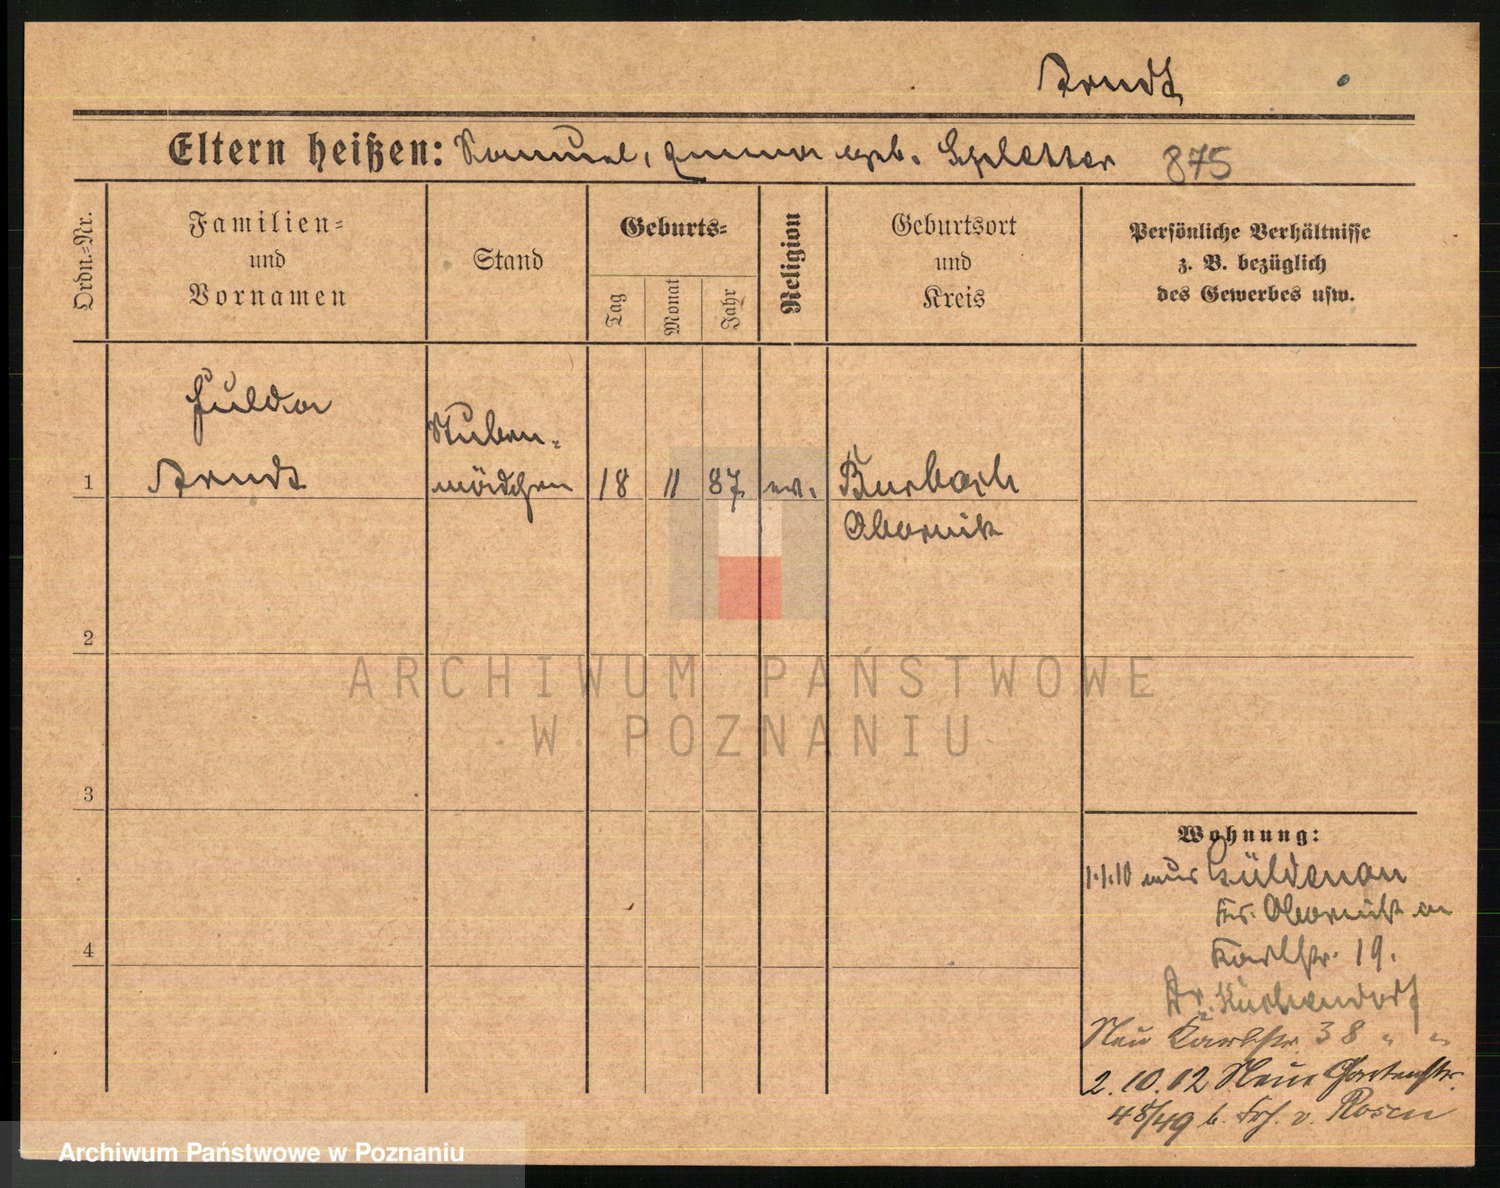 Arndt
Eltern heißen: Samuel, Emma geb. Spletter 875
Ordn.-Nr.
Familien-
und
Vornamen
Stand
Geburts-
Tag
Monat
Jahr
Religion
Geburtsort
und
Kreis
Persönliche Verhältnisse
z. B. bezüglich
des Gewerbes usw.
Hulda
Arndt
Stuben-
mädchen
1
18 11 87 ev. Burbach
Obornik
2
3
4
Wohnung:
1.1.10 aus Güldenau
Kr. Obornik
Karlstr. 19.
Dr.
Neu Karlstr. 38 " "
2.10.12 Neue Gartenstr.
48/49 b. Frh. v. Rosen
ARCHIWUM PAŃSTWOWE
W POZNANIU
Archiwum Państwowe w Poznaniu